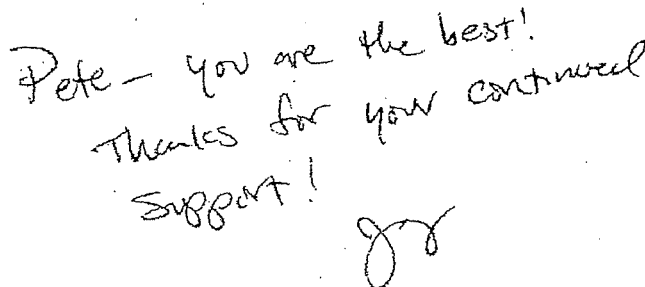 Pete – you are the best!
Thanks for your continued
Support!